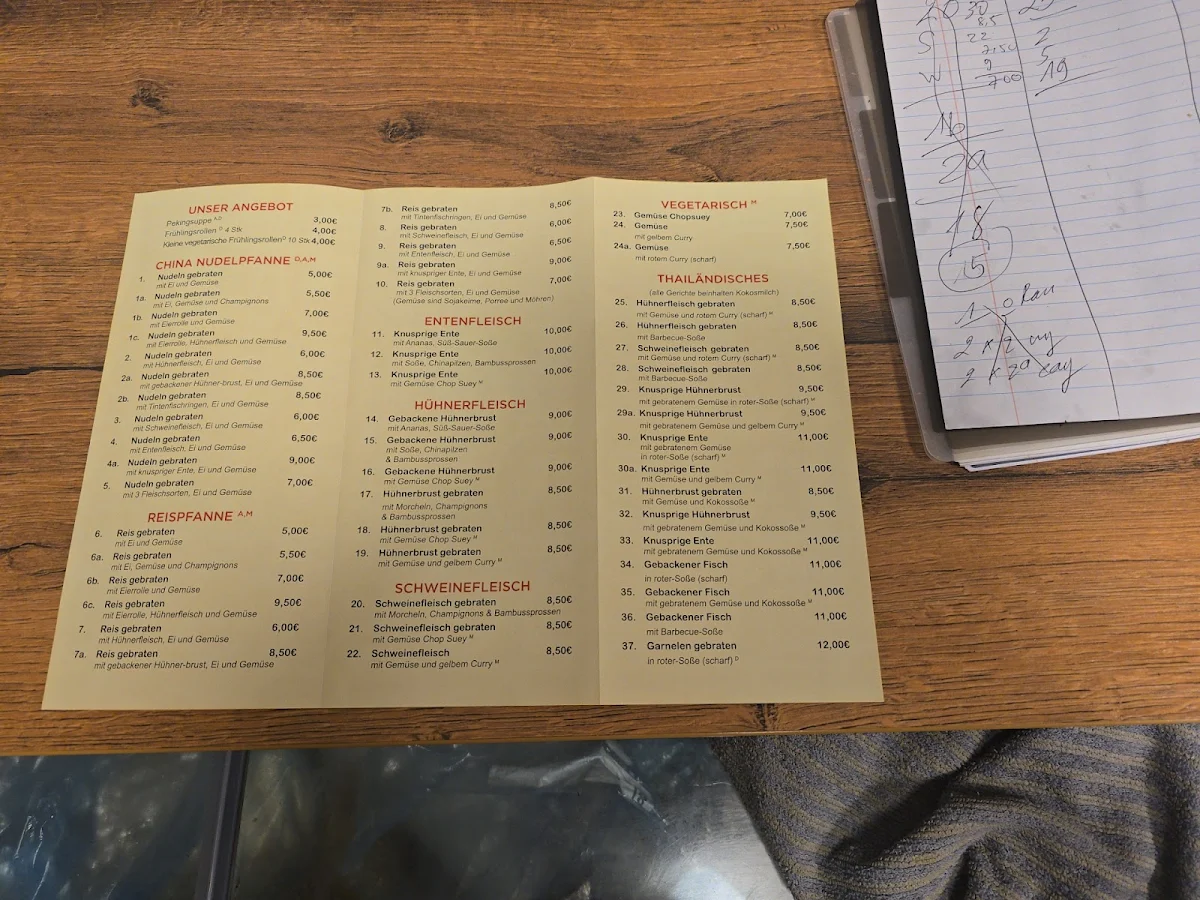 UNSER ANGEBOT
Pekingsuppe A,D 3,00€
Frühlingsrollen D 4 Stk 4,00€
Kleine vegetarische Frühlingsrollen D 10 Stk 4,00€
CHINA NUDELPFANNE D,A,M
1. Nudeln gebraten 5,00€
mit Ei und Gemüse
1a. Nudeln gebraten 5,50€
mit Ei, Gemüse und Champignons
1b. Nudeln gebraten 7,00€
mit Eierrolle und Gemüse
1c. Nudeln gebraten 9,50€
mit Eierrolle, Hühnerfleisch und Gemüse
2. Nudeln gebraten 6,00€
mit Hühnerfleisch, Ei und Gemüse
2a. Nudeln gebraten 8,50€
mit gebackener Hühner-brust, Ei und Gemüse
2b. Nudeln gebraten 8,50€
mit Tintenfischringen, Ei und Gemüse
3. Nudeln gebraten 6,00€
mit Schweinefleisch, Ei und Gemüse
4. Nudeln gebraten 6,50€
mit Entenfleisch, Ei und Gemüse
4a. Nudeln gebraten 9,00€
mit knuspriger Ente, Ei und Gemüse
5. Nudeln gebraten 7,00€
mit 3 Fleischsorten, Ei und Gemüse
REISPFANNE A,M
6. Reis gebraten 5,00€
mit Ei und Gemüse
6a. Reis gebraten 5,50€
mit Ei, Gemüse und Champignons
6b. Reis gebraten 7,00€
mit Eierrolle und Gemüse
6c. Reis gebraten 9,50€
mit Eierrolle, Hühnerfleisch und Gemüse
7. Reis gebraten 6,00€
mit Hühnerfleisch, Ei und Gemüse
7a. Reis gebraten 8,50€
mit gebackener Hühner-brust, Ei und Gemüse
7b. Reis gebraten 8,50€
mit Tintenfischringen, Ei und Gemüse
8. Reis gebraten 6,00€
mit Schweinefleisch, Ei und Gemüse
9. Reis gebraten 6,50€
mit Entenfleisch, Ei und Gemüse
9a. Reis gebraten 9,00€
mit knuspriger Ente, Ei und Gemüse
10. Reis gebraten 7,00€
mit 3 Fleischsorten, Ei und Gemüse
(Gemüse sind Sojakeime, Porree und Möhren)
ENTENFLEISCH
11. Knusprige Ente 10,00€
mit Ananas, Süß-Sauer-Soße
12. Knusprige Ente 10,00€
mit Soße, Chinapilzen, Bambussprossen
13. Knusprige Ente 10,00€
mit Gemüse Chop Suey M
HÜHNERFLEISCH
14. Gebackene Hühnerbrust 9,00€
mit Ananas, Süß-Sauer-Soße
15. Gebackene Hühnerbrust 9,00€
mit Soße, Chinapilzen
& Bambussprossen
16. Gebackene Hühnerbrust 9,00€
mit Gemüse Chop Suey M
17. Hühnerbrust gebraten 8,50€
mit Morcheln, Champignons
& Bambussprossen
18. Hühnerbrust gebraten 8,50€
mit Gemüse Chop Suey M
19. Hühnerbrust gebraten 8,50€
mit Gemüse und gelbem Curry M
SCHWEINEFLEISCH
20. Schweinefleisch gebraten 8,50€
mit Morcheln, Champignons & Bambussprossen
21. Schweinefleisch gebraten 8,50€
mit Gemüse Chop Suey M
22. Schweinefleisch 8,50€
mit Gemüse und gelbem Curry M
VEGETARISCH M
23. Gemüse Chopsuey 7,00€
24. Gemüse 7,50€
mit gelbem Curry
24a. Gemüse 7,50€
mit rotem Curry (scharf)
THAILÄNDISCHES
(alle Gerichte beinhalten Kokosmilch)
25. Hühnerfleisch gebraten 8,50€
mit Gemüse und rotem Curry (scharf) M
26. Hühnerfleisch gebraten 8,50€
mit Barbecue-Soße
27. Schweinefleisch gebraten 8,50€
mit Gemüse und rotem Curry (scharf) M
28. Schweinefleisch gebraten 8,50€
mit Barbecue-Soße
29. Knusprige Hühnerbrust 9,50€
mit gebratenem Gemüse in roter-Soße (scharf) M
29a. Knusprige Hühnerbrust 9,50€
mit gebratenem Gemüse und gelbem Curry M
30. Knusprige Ente 11,00€
mit gebratenem Gemüse
in roter-Soße (scharf) M
30a. Knusprige Ente 11,00€
mit Gemüse und gelbem Curry M
31. Hühnerbrust gebraten 8,50€
mit Gemüse und Kokossoße M
32. Knusprige Hühnerbrust 9,50€
mit gebratenem Gemüse und Kokossoße M
33. Knusprige Ente 11,00€
mit gebratenem Gemüse und Kokossoße M
34. Gebackener Fisch 11,00€
in roter-Soße (scharf)
35. Gebackener Fisch 11,00€
mit gebratenem Gemüse und Kokossoße M
36. Gebackener Fisch 11,00€
mit Barbecue-Soße
37. Garnelen gebraten 12,00€
in roter-Soße (scharf) D
20 30
8,5
S 22 2
7,50 5
W 9 19
700
2a
18
15